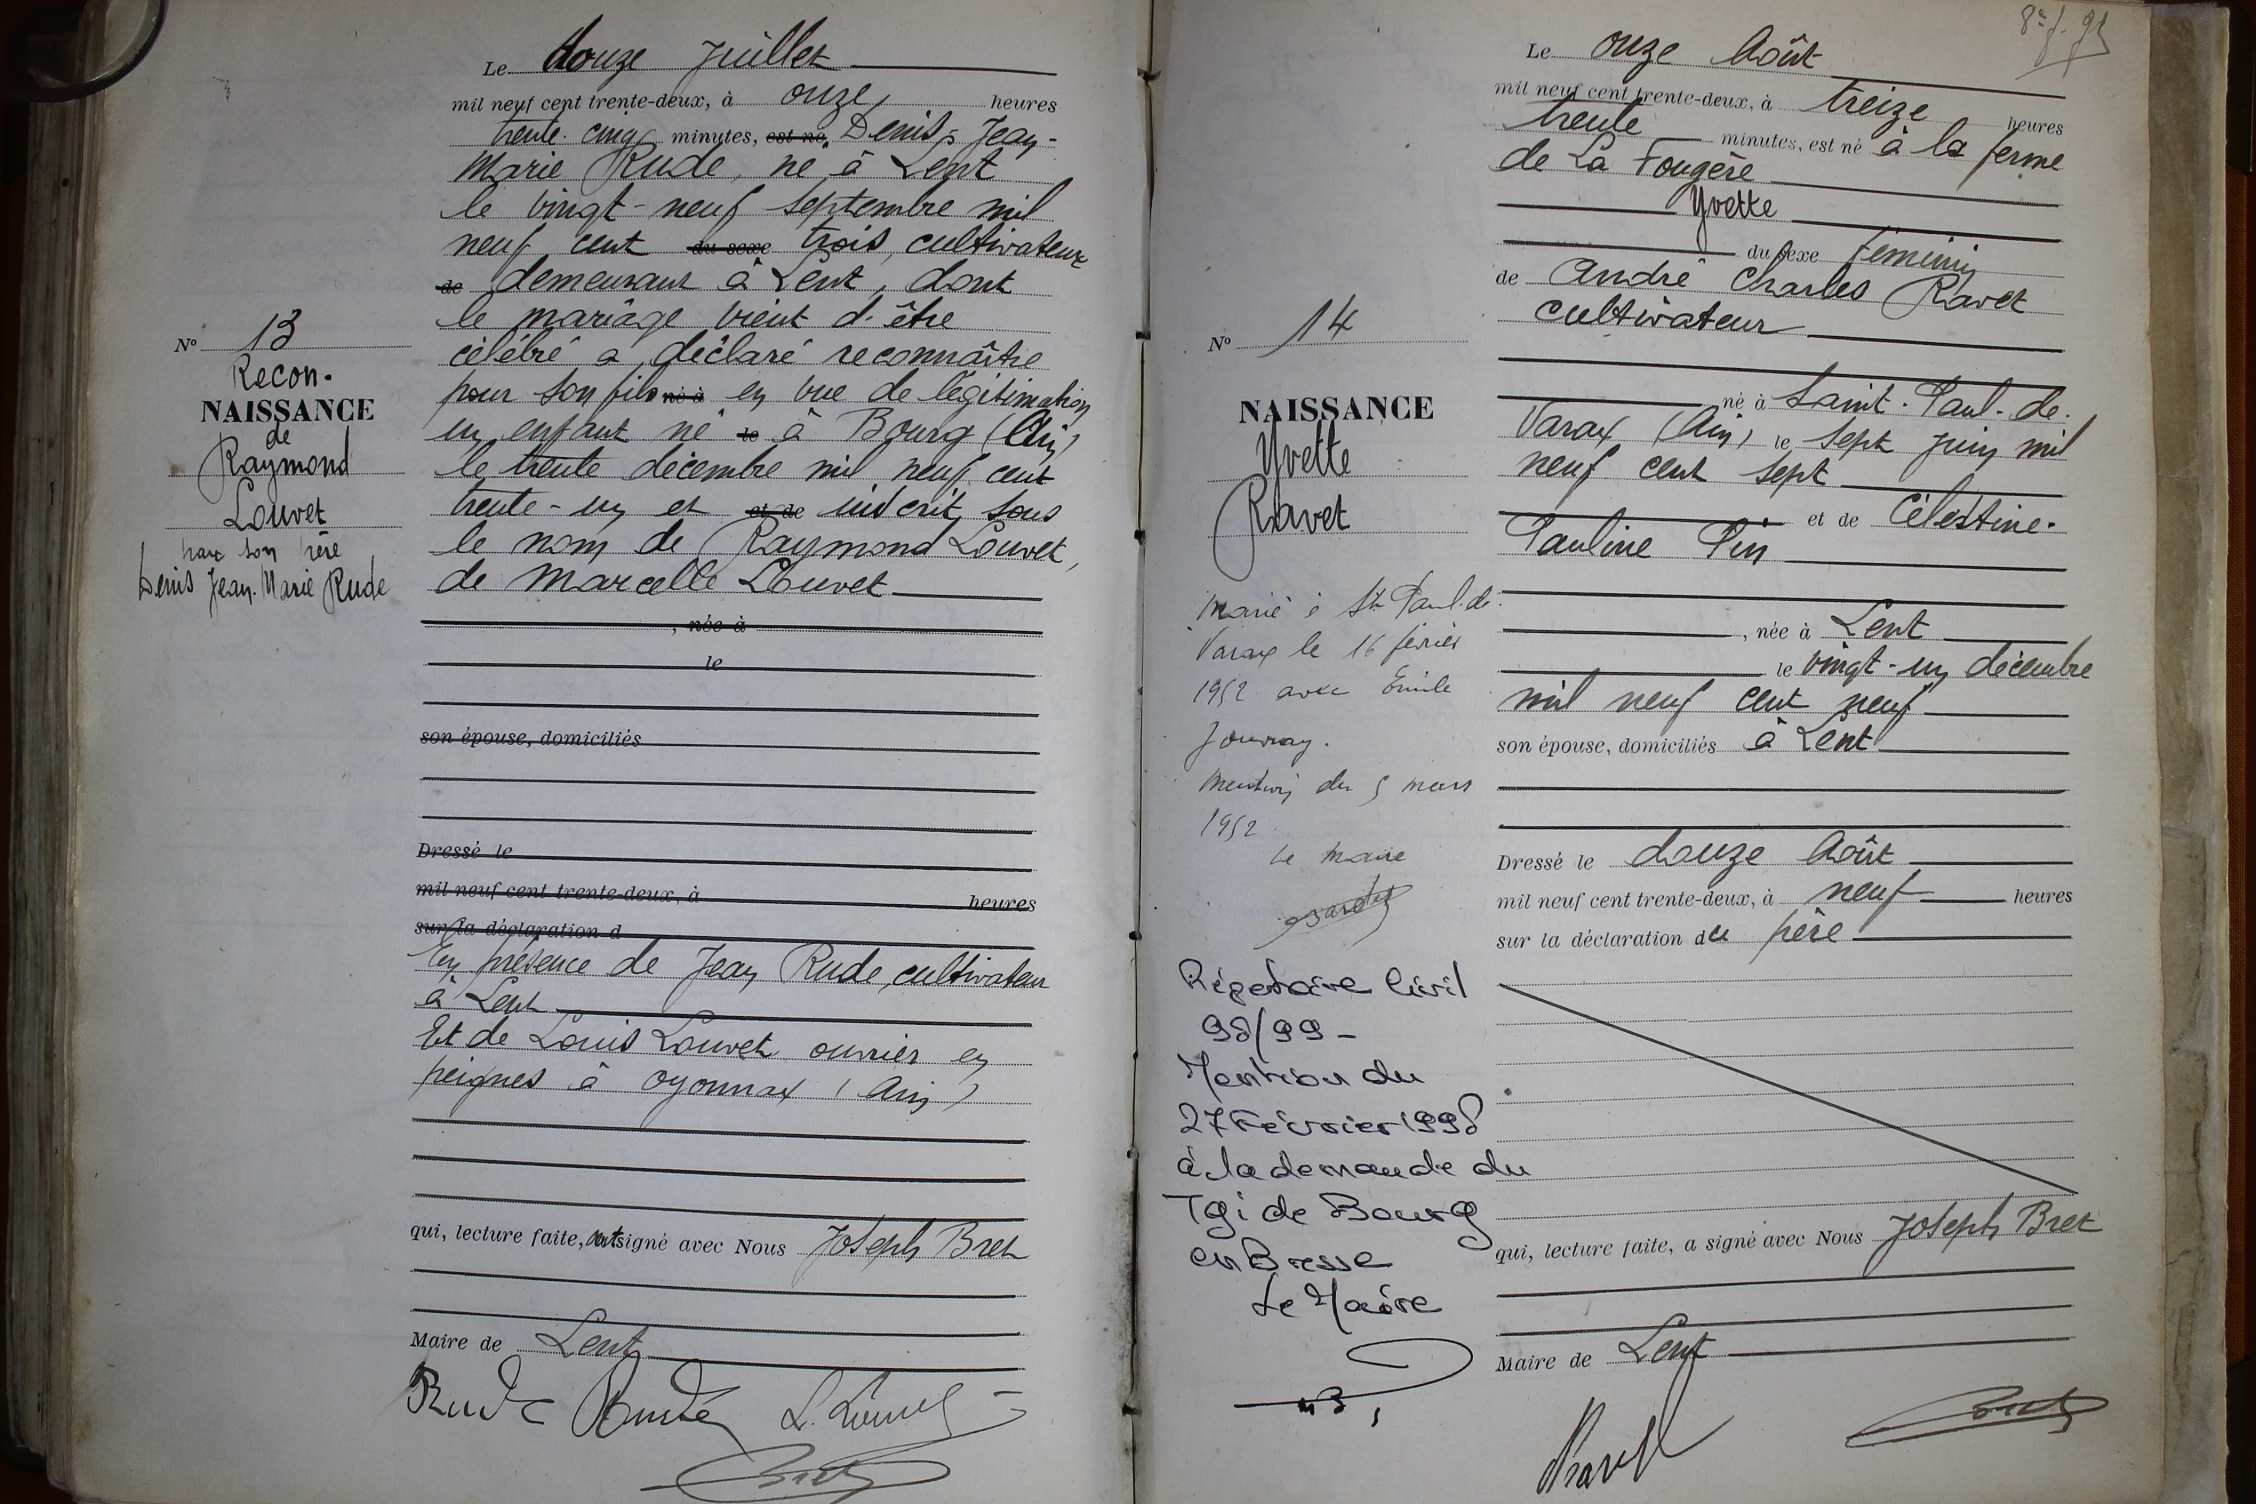 Le douze Juillet
mil neuf cent trente-deux, à onze heures
trente-cinq minutes, est né Denis, Jean-
Marie Rude, né à Lent
le vingt-neuf septembre mil
neuf cent du sexe trois, cultivateur
de demeurant à Lent, dont
le mariage vient d'être
célébré a déclaré reconnaître
pour son fils né à en vue de légitimation
un enfant né le à Bourg (Ain)
le trente décembre mil neuf cent
trente-un et et de inscrit sous
le nom de Raymond Louvet,
de Marcelle Louvet
, née à
le
son épouse, domiciliés
Dressé le
mil neuf cent trente-deux, à heures
sur la déclaration d
En présence de Jean Rude, cultivateur
à Lent
Et de Louis Louvet ouvrier en
peignes à Oyonnax (Ain)
qui, lecture faite, ont signé avec Nous Joseph Bret
Maire de Lent
Rude Rude L. Louvet
Bret
N° 13
Recon-
NAISSANCE
de
Raymond
Louvet
par son père
Denis Jean-Marie Rude
8e f.
Le onze Août
mil neuf cent trente-deux, à treize heures
trente minutes, est né à la ferme
de La Fougère
Yvette
du sexe féminin
de André Charles Ravet
cultivateur
né à Saint-Paul-de-
Varax (Ain) le sept juin mil
neuf cent sept
et de Célestine-
Pauline Pin
, née à Lent
le vingt-un décembre
mil neuf cent neuf
son épouse, domiciliés à Lent
Dressé le douze Août
mil neuf cent trente-deux, à neuf heures
sur la déclaration du père
qui, lecture faite, a signé avec Nous Joseph Bret
Maire de Lent
Ravet
Bret
N° 14
NAISSANCE
Yvette
Ravet
Marié à St Paul-de-
Varax le 16 février
1952 avec Emile
Jouvray.
Mention du 5 mars
1952
Le Maire
Répertoire Civil
98/99 -
Mention du
27 Février 1998
à la demande du
Tgi de Bourg
en Bresse
Le Maire